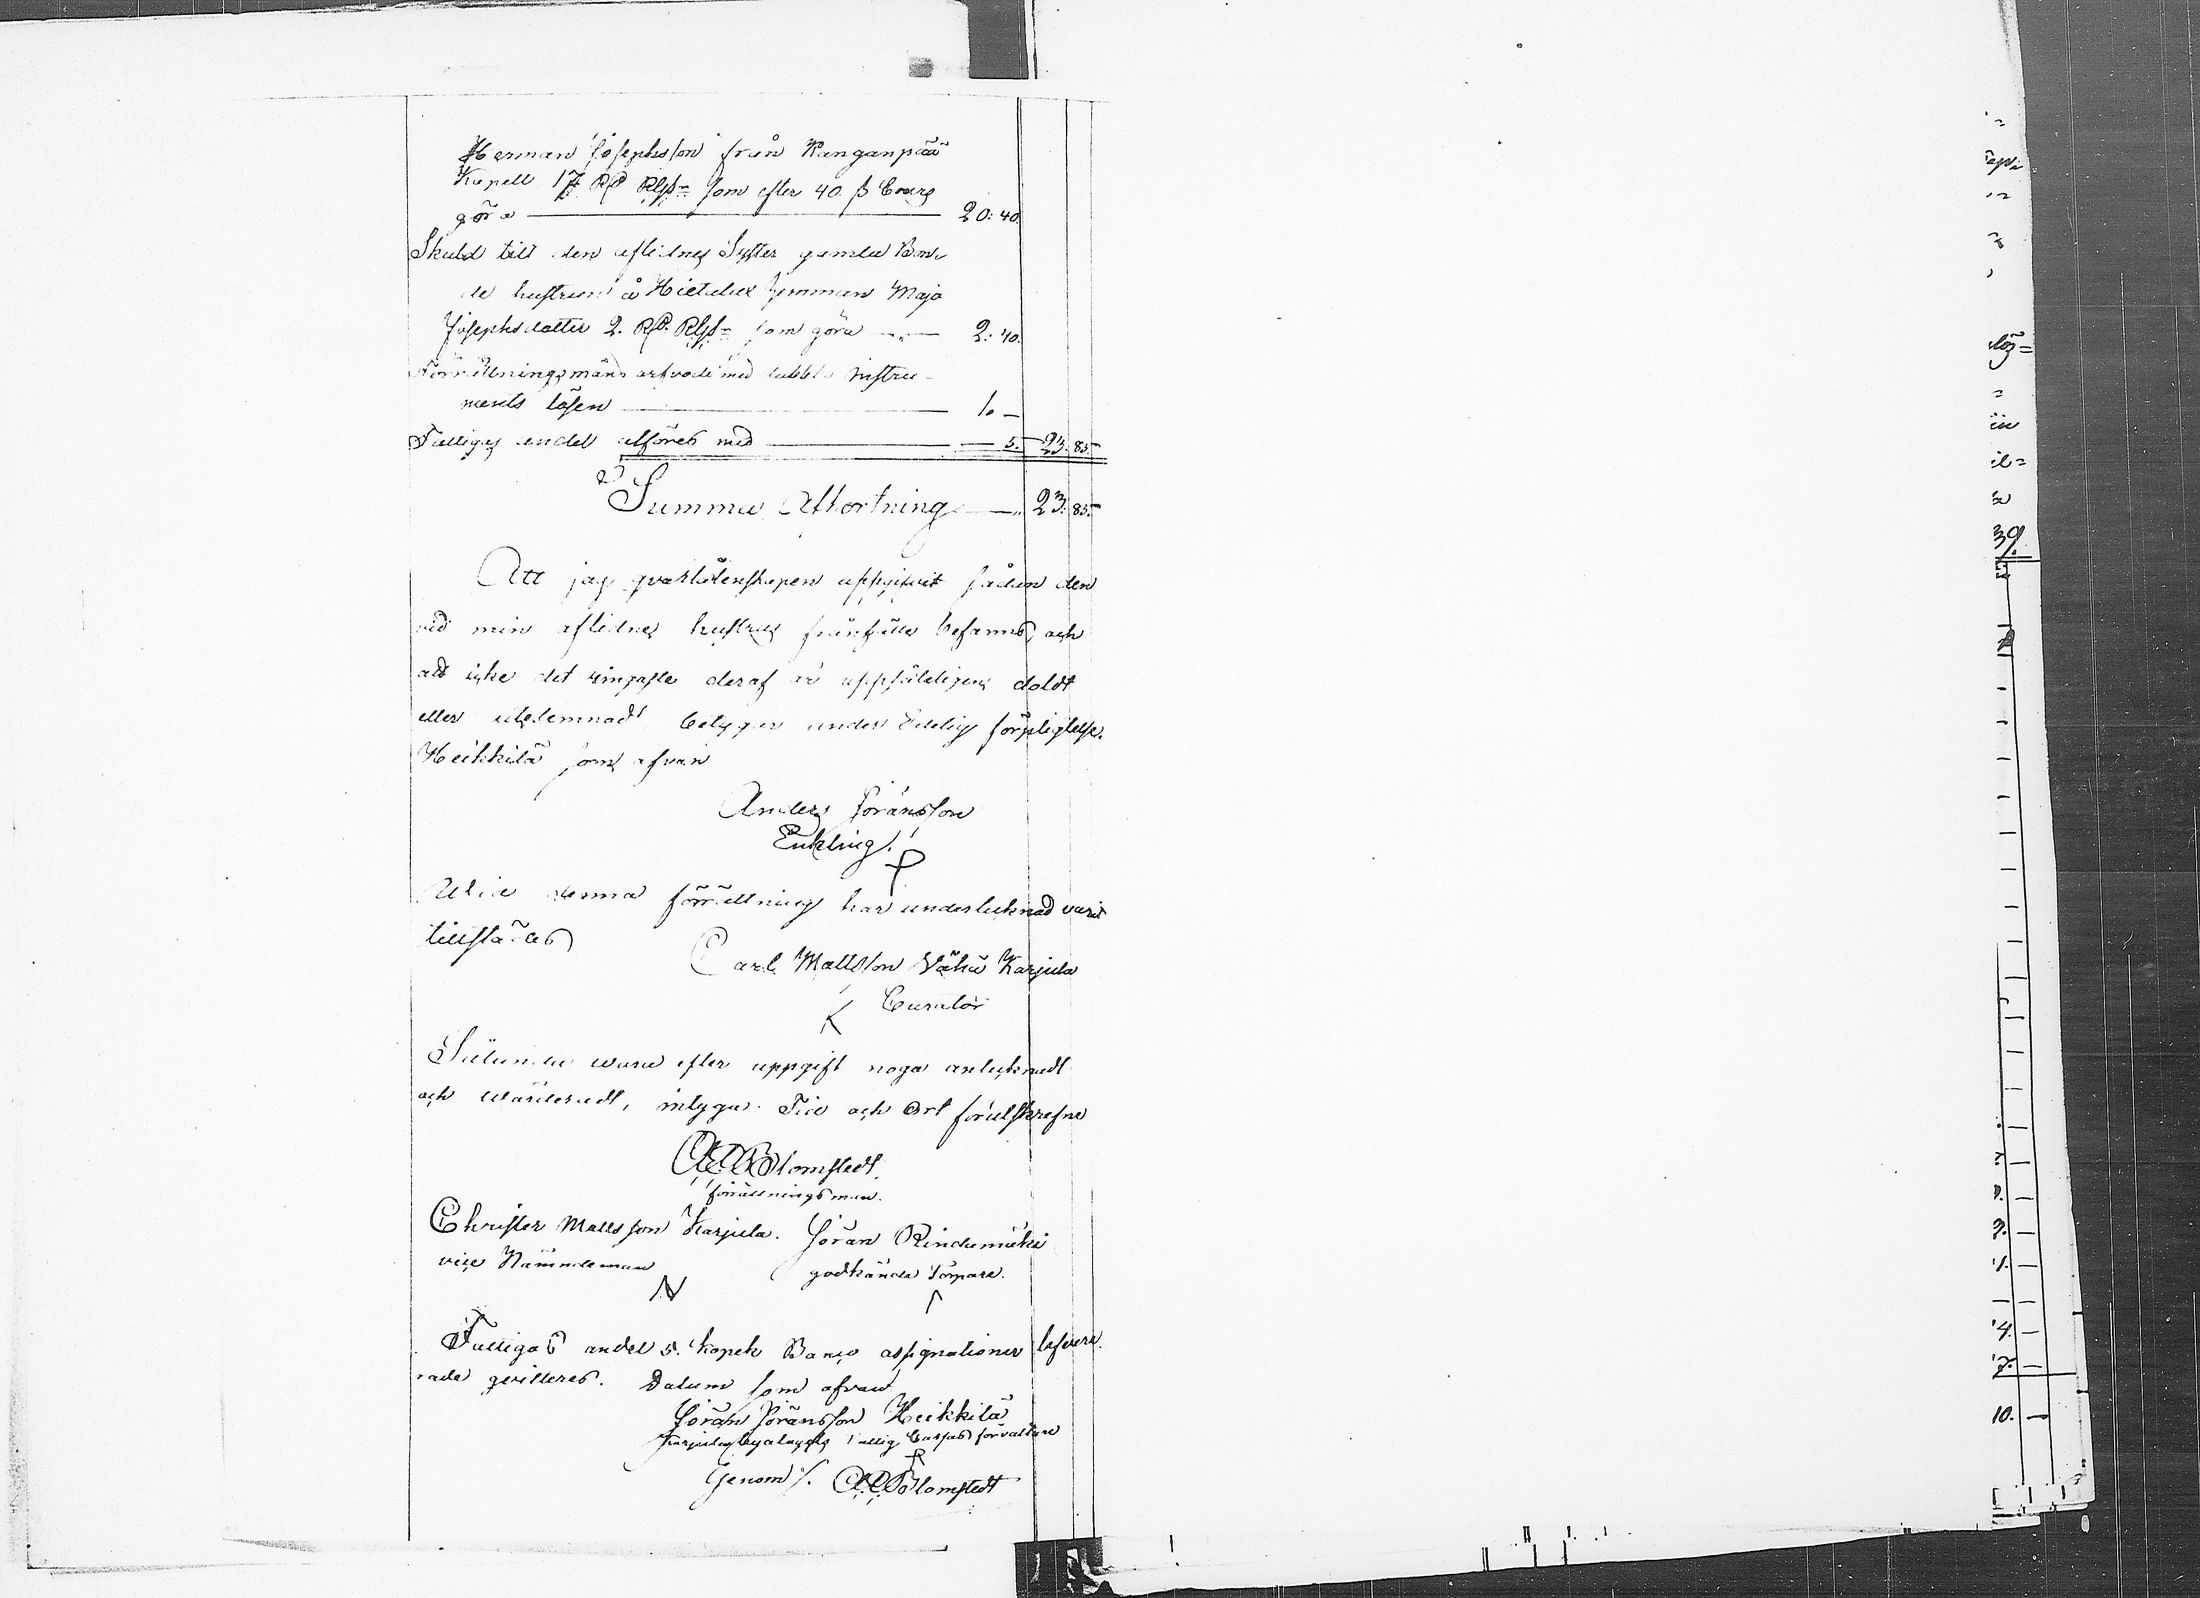 Herman Josephsson från Kanganpää
Kapell 17 Rd Rgs som efter 40 ß Cours
göra 20: 40.
Skuld till den aflidnes Syster gamla Bon
de hustrun å Hietala hemman Maja
Josephsdotter 2. Rd. Rgs som göra 2: 40.
Förrättningsmans arfvode med dubbla instru-
ments lösen 1. —
Fattiges andel afföres med 5. 23. 85.
Summa Afkortning 23: 85.
Att jag qvarlåtenskapen uppgifvit sådan den
vid min aflidnes hustrus frånfälle befanns, och
att icke det ringaste deraf är uppsåteligen doldt
eller utelemnadt betygar under Edelig förpligtelse.
Heikkilä som ofvan
Anders Jöransson
Enkling.
Wid denna förrättning har undertecknad varit
tillstädes
Carl Mattsson Vähä Karjula
Curator
Sålunda wara efter uppgift noga antecknadt
och wärderadt, intyga. Tid och Ort förutskrefne
Blomstedt.
förrättningsman.
Christer Mattsson Karjula. Jöran Rindamäki
vice Nämndeman godkända Torpare.
Fattigas andel 5. kopek Banco assignationer lefvere-
rade qvitteras. Datum som ofvan
Jöran Jöransson Heikkilä
Karjula byalagets fattig Cassas förvaltare
Genom /. Blomstedt
39.
10. —